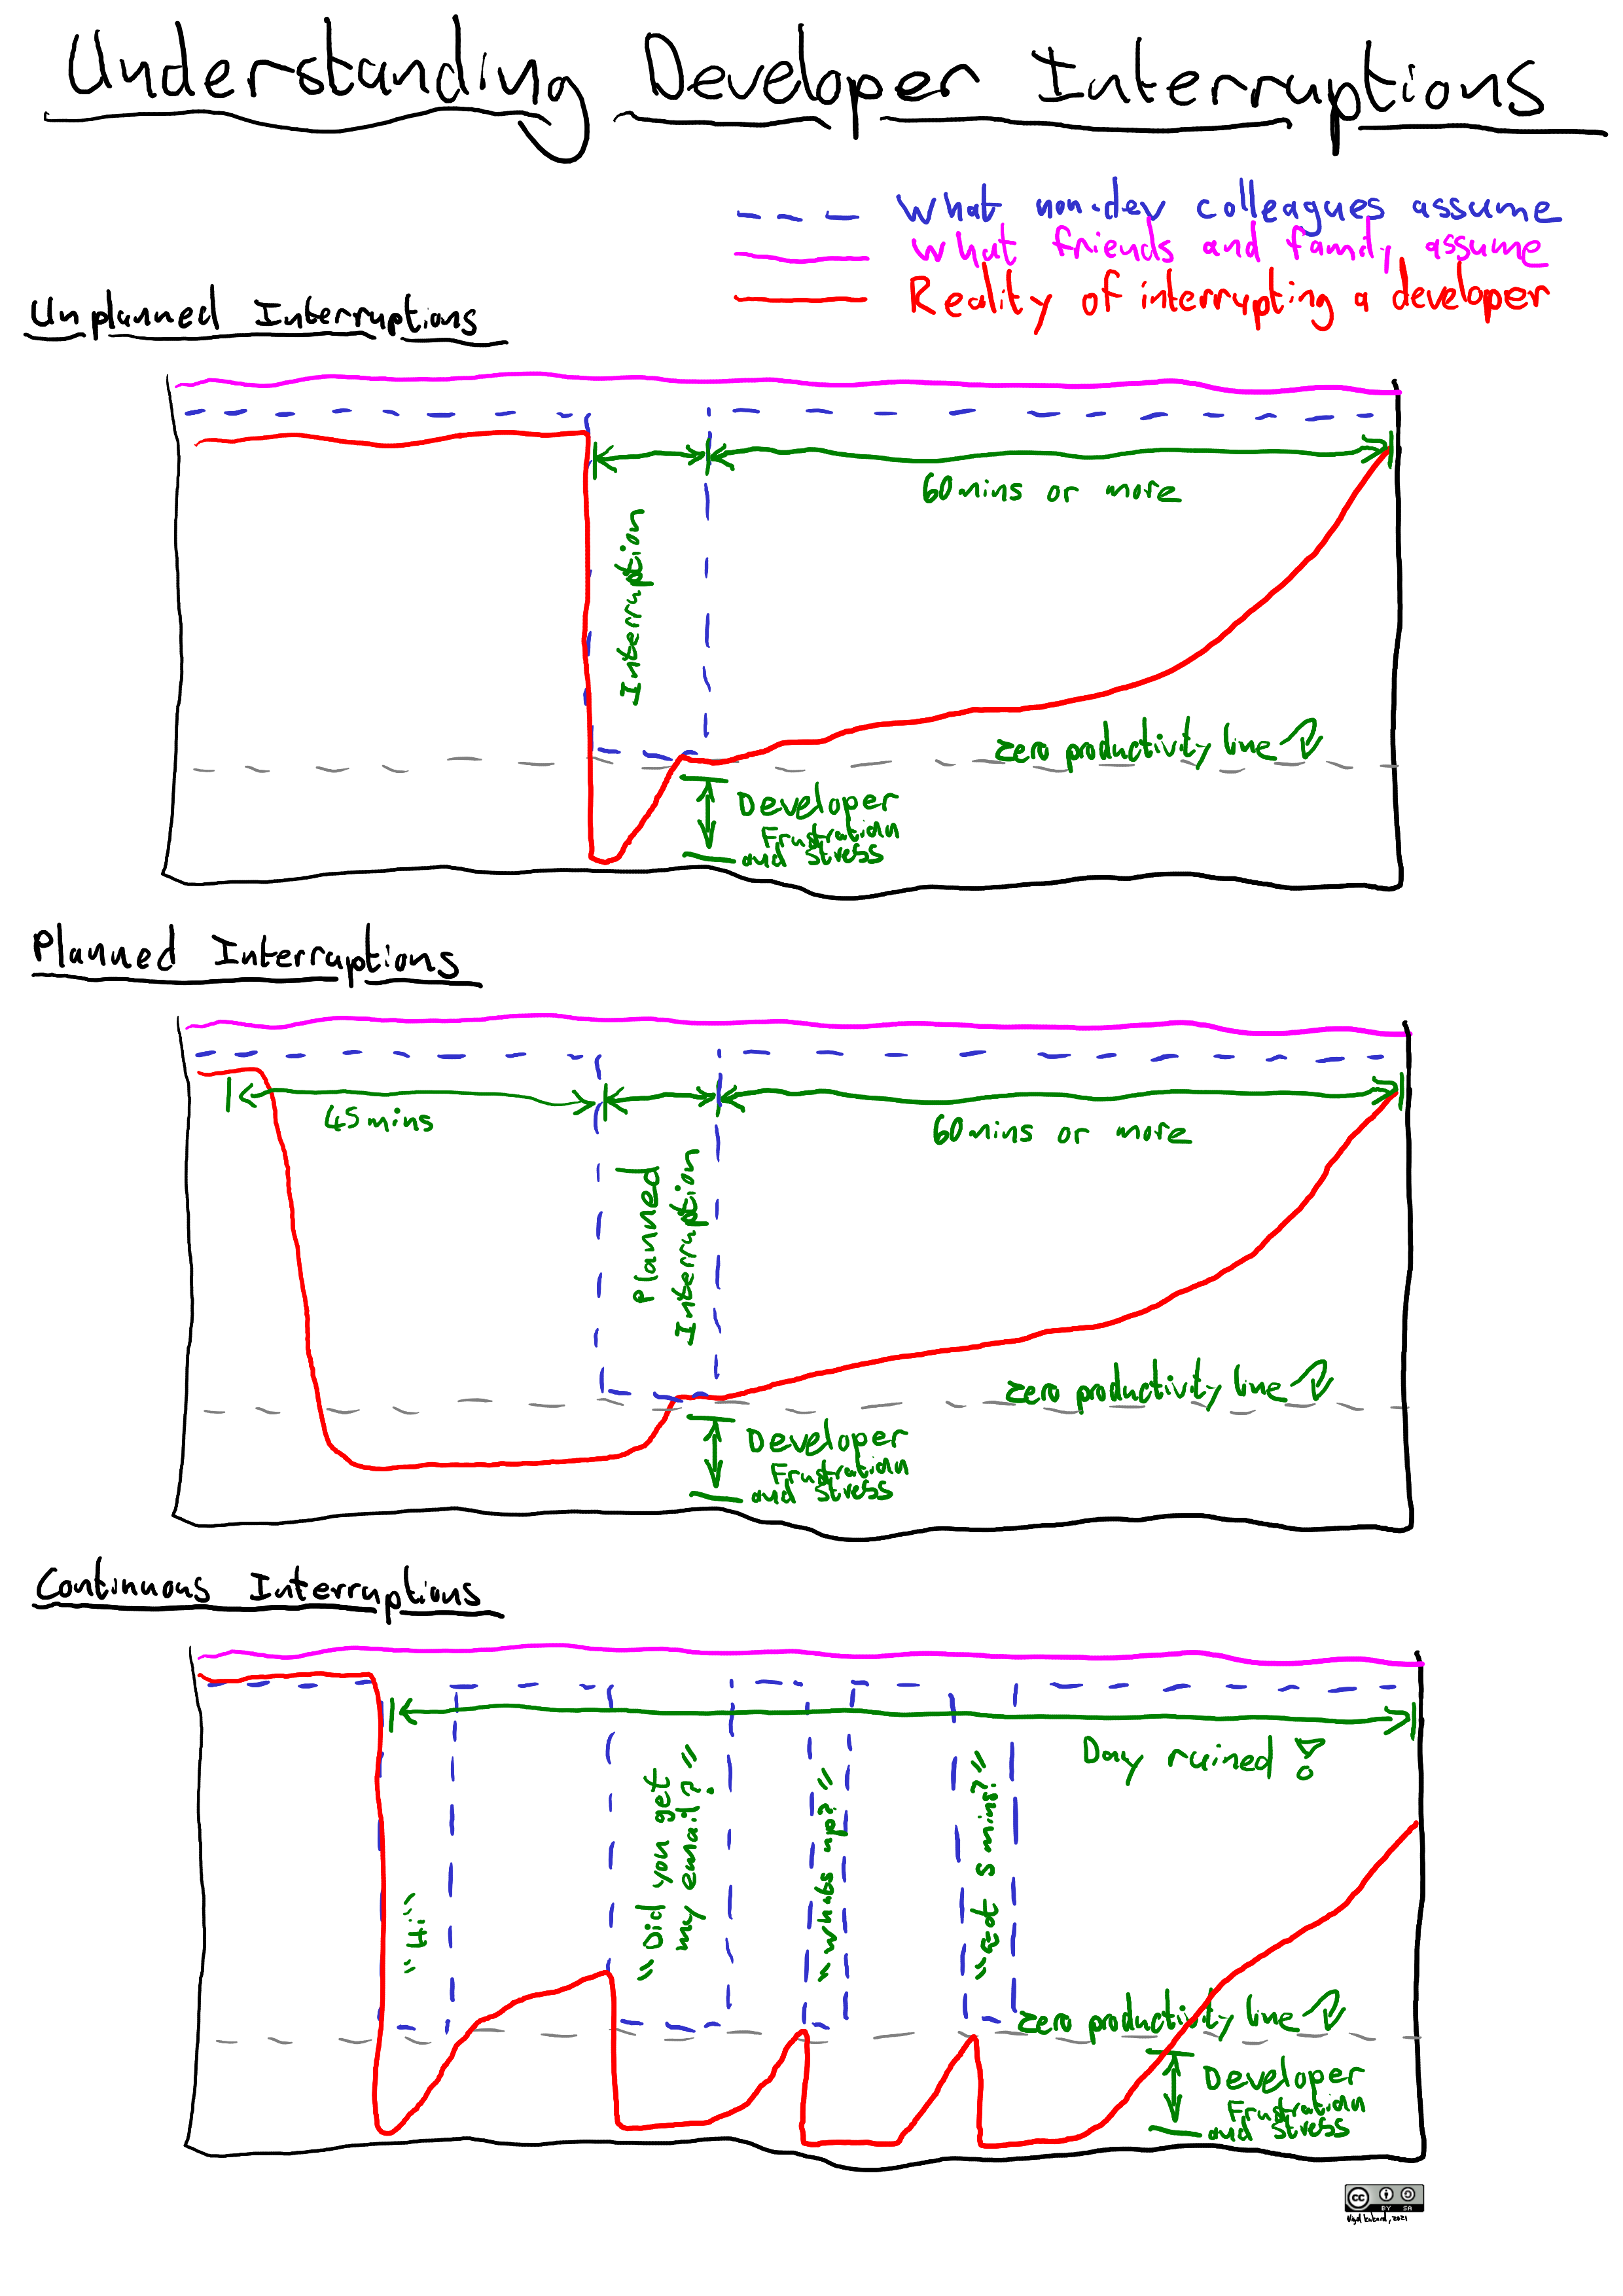 Understanding Developer Interruptions
What non-dev colleagues assume
What friends and family assume
Reality of interrupting a developer
Unplanned Interruptions
60mins or more
Interruption
zero productivity line
Developer
Frustration
and Stress
Planned Interruptions
45mins
60mins or more
Planned
Interruption
zero productivity line
Developer
Frustration
and Stress
Continuous Interruptions
Day ruined!
"Hi"
"Did you get
my email?"
"whats up?"
"Got 5 mins?"
zero productivity line
Developer
Frustration
and Stress
cc
BY SA
2021